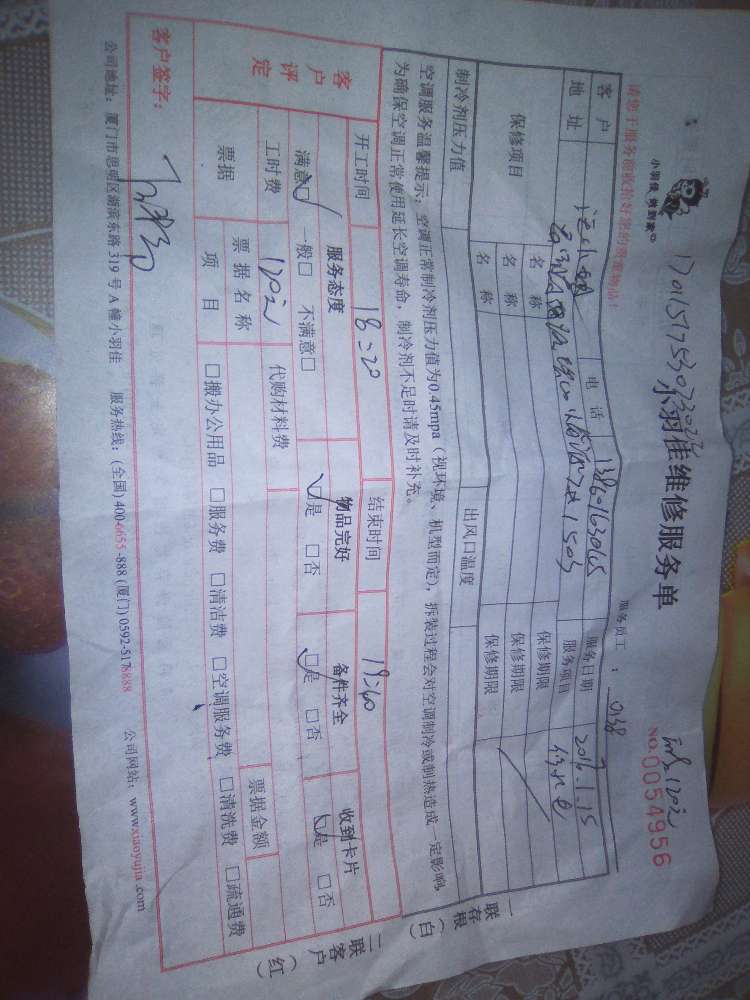 小羽佳 到家
小羽佳维修服务单
NO.0054956
服务员工：038
请您于服务前收拾好您的贵重物品！
客户 电话 13860163065 服务日期 2016.1.15
地址 1503 服务项目
保修项目 名称 保修期限
名称 保修期限
名称 保修期限
制冷剂压力值 出风口温度
空调服务温馨提示：空调正常制冷剂压力值为0.45mpa（视环境、机型而定），拆装过程会对空调制冷或制热造成一定影响，
为确保空调正常使用延长空调寿命，制冷剂不足时请及时补充。
一联存根（白）
二联客户（红）
开工时间 18:20 结束时间 19:60
客户评定
服务态度 物品完好 备件齐全 收到卡片
满意□ 一般□ 不满意□ □是 □否 □是 □否 □是 □否
工时费 120元 代购材料费
票据 票据名称 票据金额
项目 □搬办公用品 □服务费 □清洁费 □空调服务费 □清洗费 □疏通费
客户签字：
公司地址：厦门市思明区湖滨东路319号A幢小羽佳 服务热线：(全国)400-6655-888 (厦门)0592-5178888 公司网站：www.xiaoyujia.com